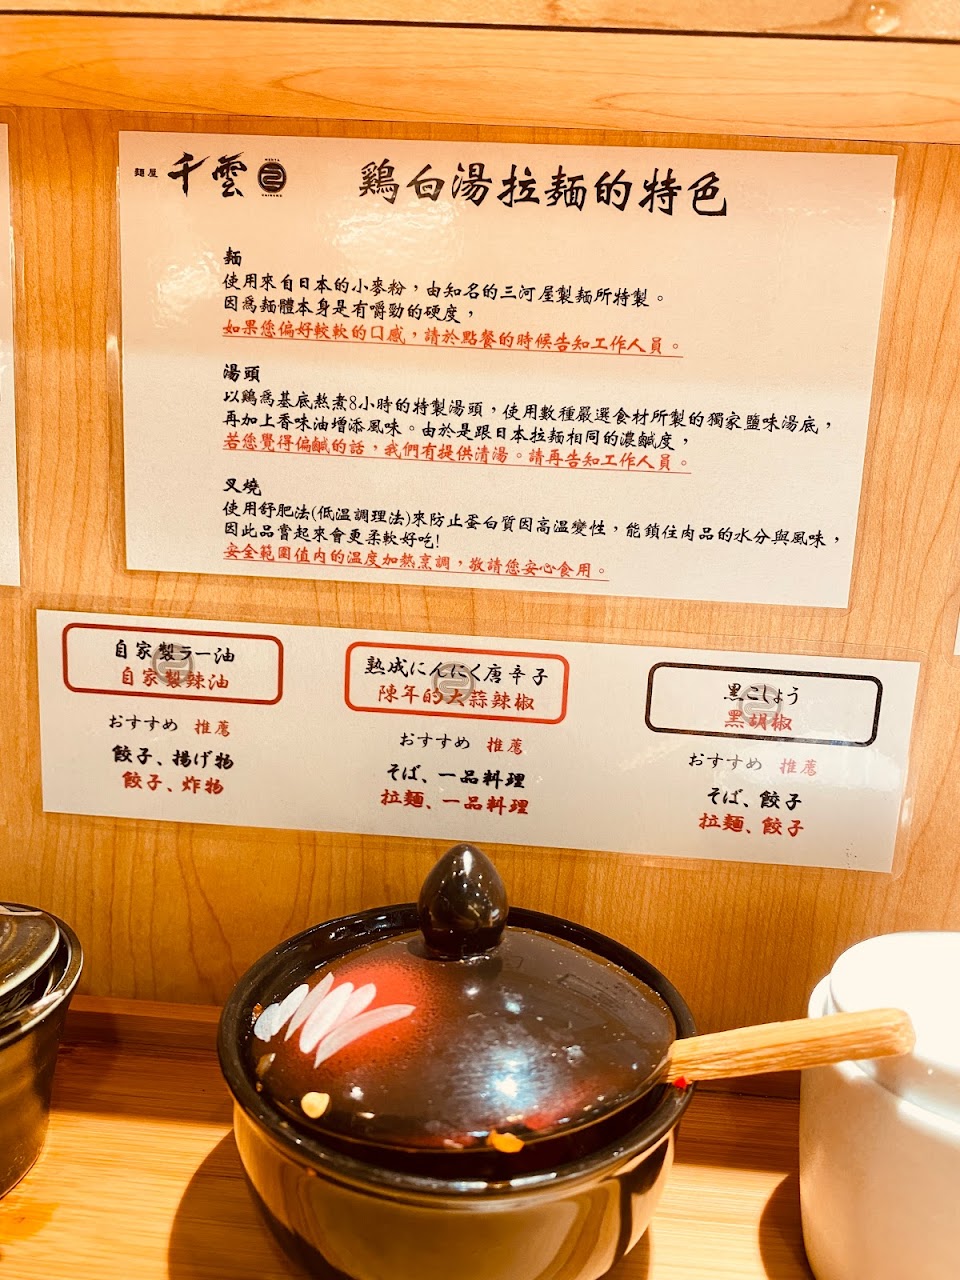 麵屋 千雲
鶏白湯拉麵的特色
麵
使用來自日本的小麥粉，由知名的三河屋製麵所特製。
因為麵體本身是有嚼勁的硬度，
如果您偏好較軟的口感，請於點餐的時候告知工作人員。
湯頭
以鶏為基底熬煮8小時的特製湯頭，使用數種嚴選食材所製的獨家鹽味湯底，
再加上香味油增添風味。由於是跟日本拉麵相同的濃鹹度，
若您覺得偏鹹的話，我們有提供清湯。請再告知工作人員。
叉燒
使用舒肥法(低溫調理法)來防止蛋白質因高溫變性，能鎖住肉品的水分與風味，
因此品嘗起來會更柔軟好吃!
安全範圍值內的溫度加熱烹調，敬請您安心食用。
自家製ラー油
自家製辣油
おすすめ 推薦
餃子、揚げ物
餃子、炸物
熟成にんにく唐辛子
陳年的大蒜辣椒
おすすめ 推薦
そば、一品料理
拉麵、一品料理
黒こしょう
黑胡椒
おすすめ 推薦
そば、餃子
拉麵、餃子